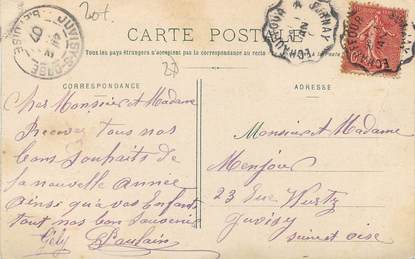 20t
CARTE POSTALE
Tous les pays étrangers n'acceptent pas la correspondance au recto
27
CORRESPONDANCE
ADRESSE
Cher Monsieur et Madame
Recevez tous nos
bons souhaits de
la nouvelle année
ainsi qu'a vos enfants
tout nos bon souvenir
Monsieur et Madame
Menjou
23 Rue Wurtz
Juvisy
Seine et oise
JUVISY-S-ORGE
ECHAUFFOUR A BERNAY
ECHAUFFOUR